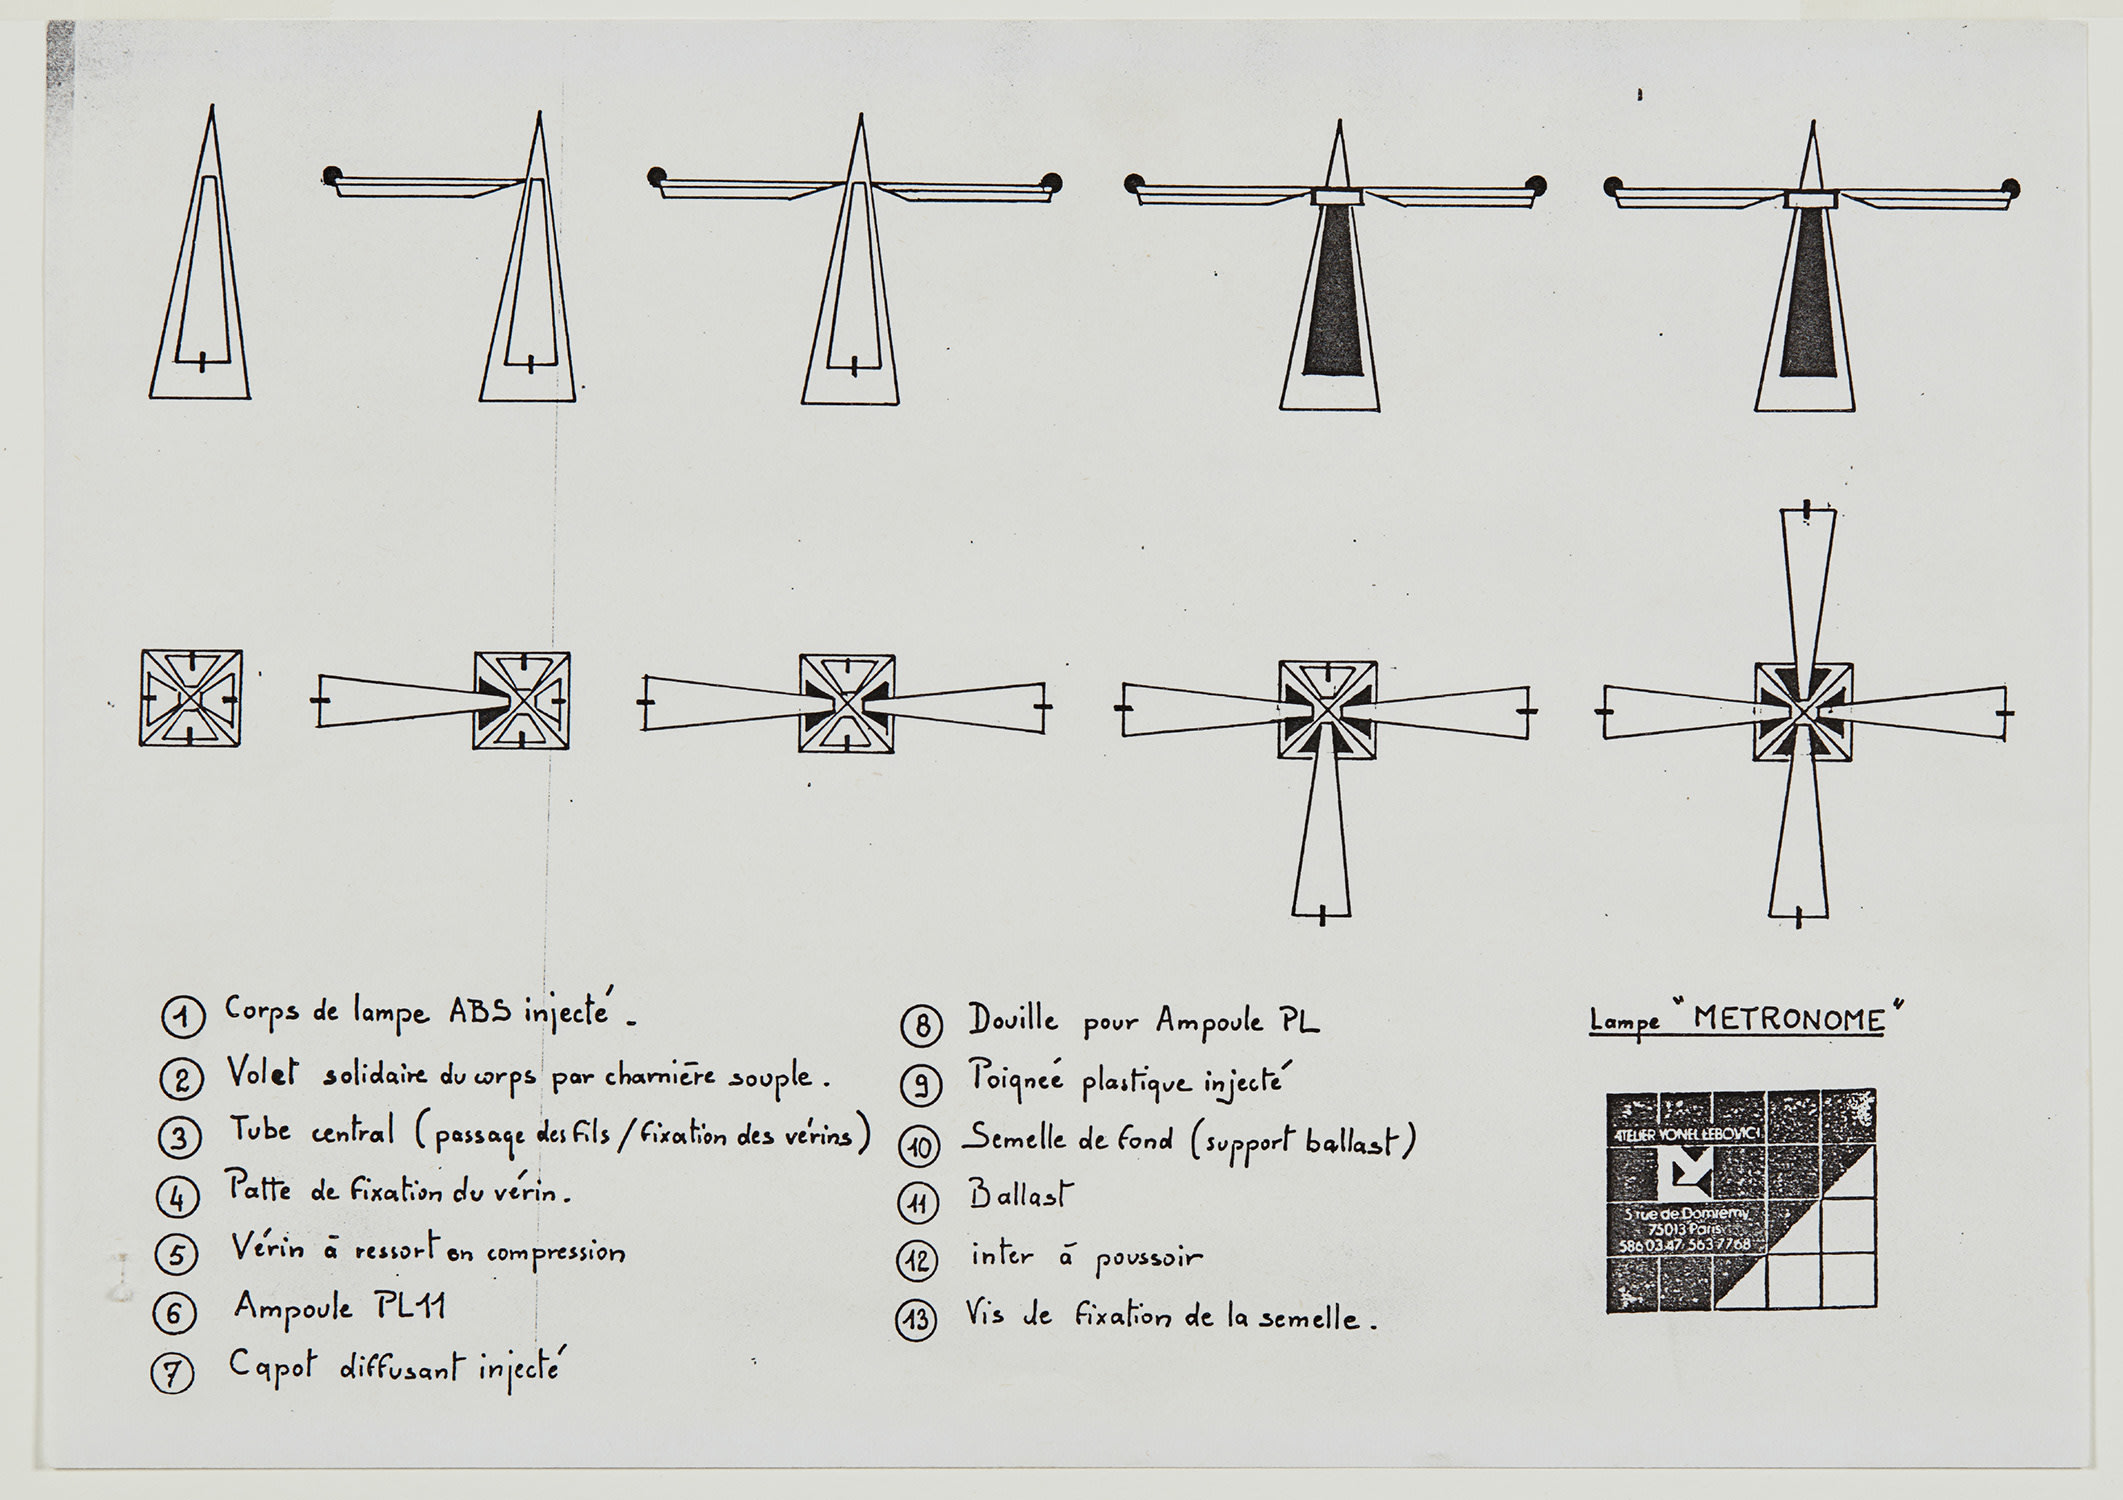 1 Corps de lampe ABS injecté.
2 Volet solidaire du corps par charnière souple.
3 Tube central (passage des fils / fixation des vérins)
4 Patte de fixation du vérin.
5 Vérin à ressort en compression
6 Ampoule PL11
7 Capot diffusant injecté
8 Douille pour Ampoule PL
9 Poigneé plastique injecté
10 Semelle de fond (support ballast)
11 Ballast
12 inter à poussoir
13 Vis de fixation de la semelle.
Lampe "METRONOME"
ATELIER YONEL LEBOVICI
5 rue de Domrémy
75013 Paris
586 03 47. 563 77 68